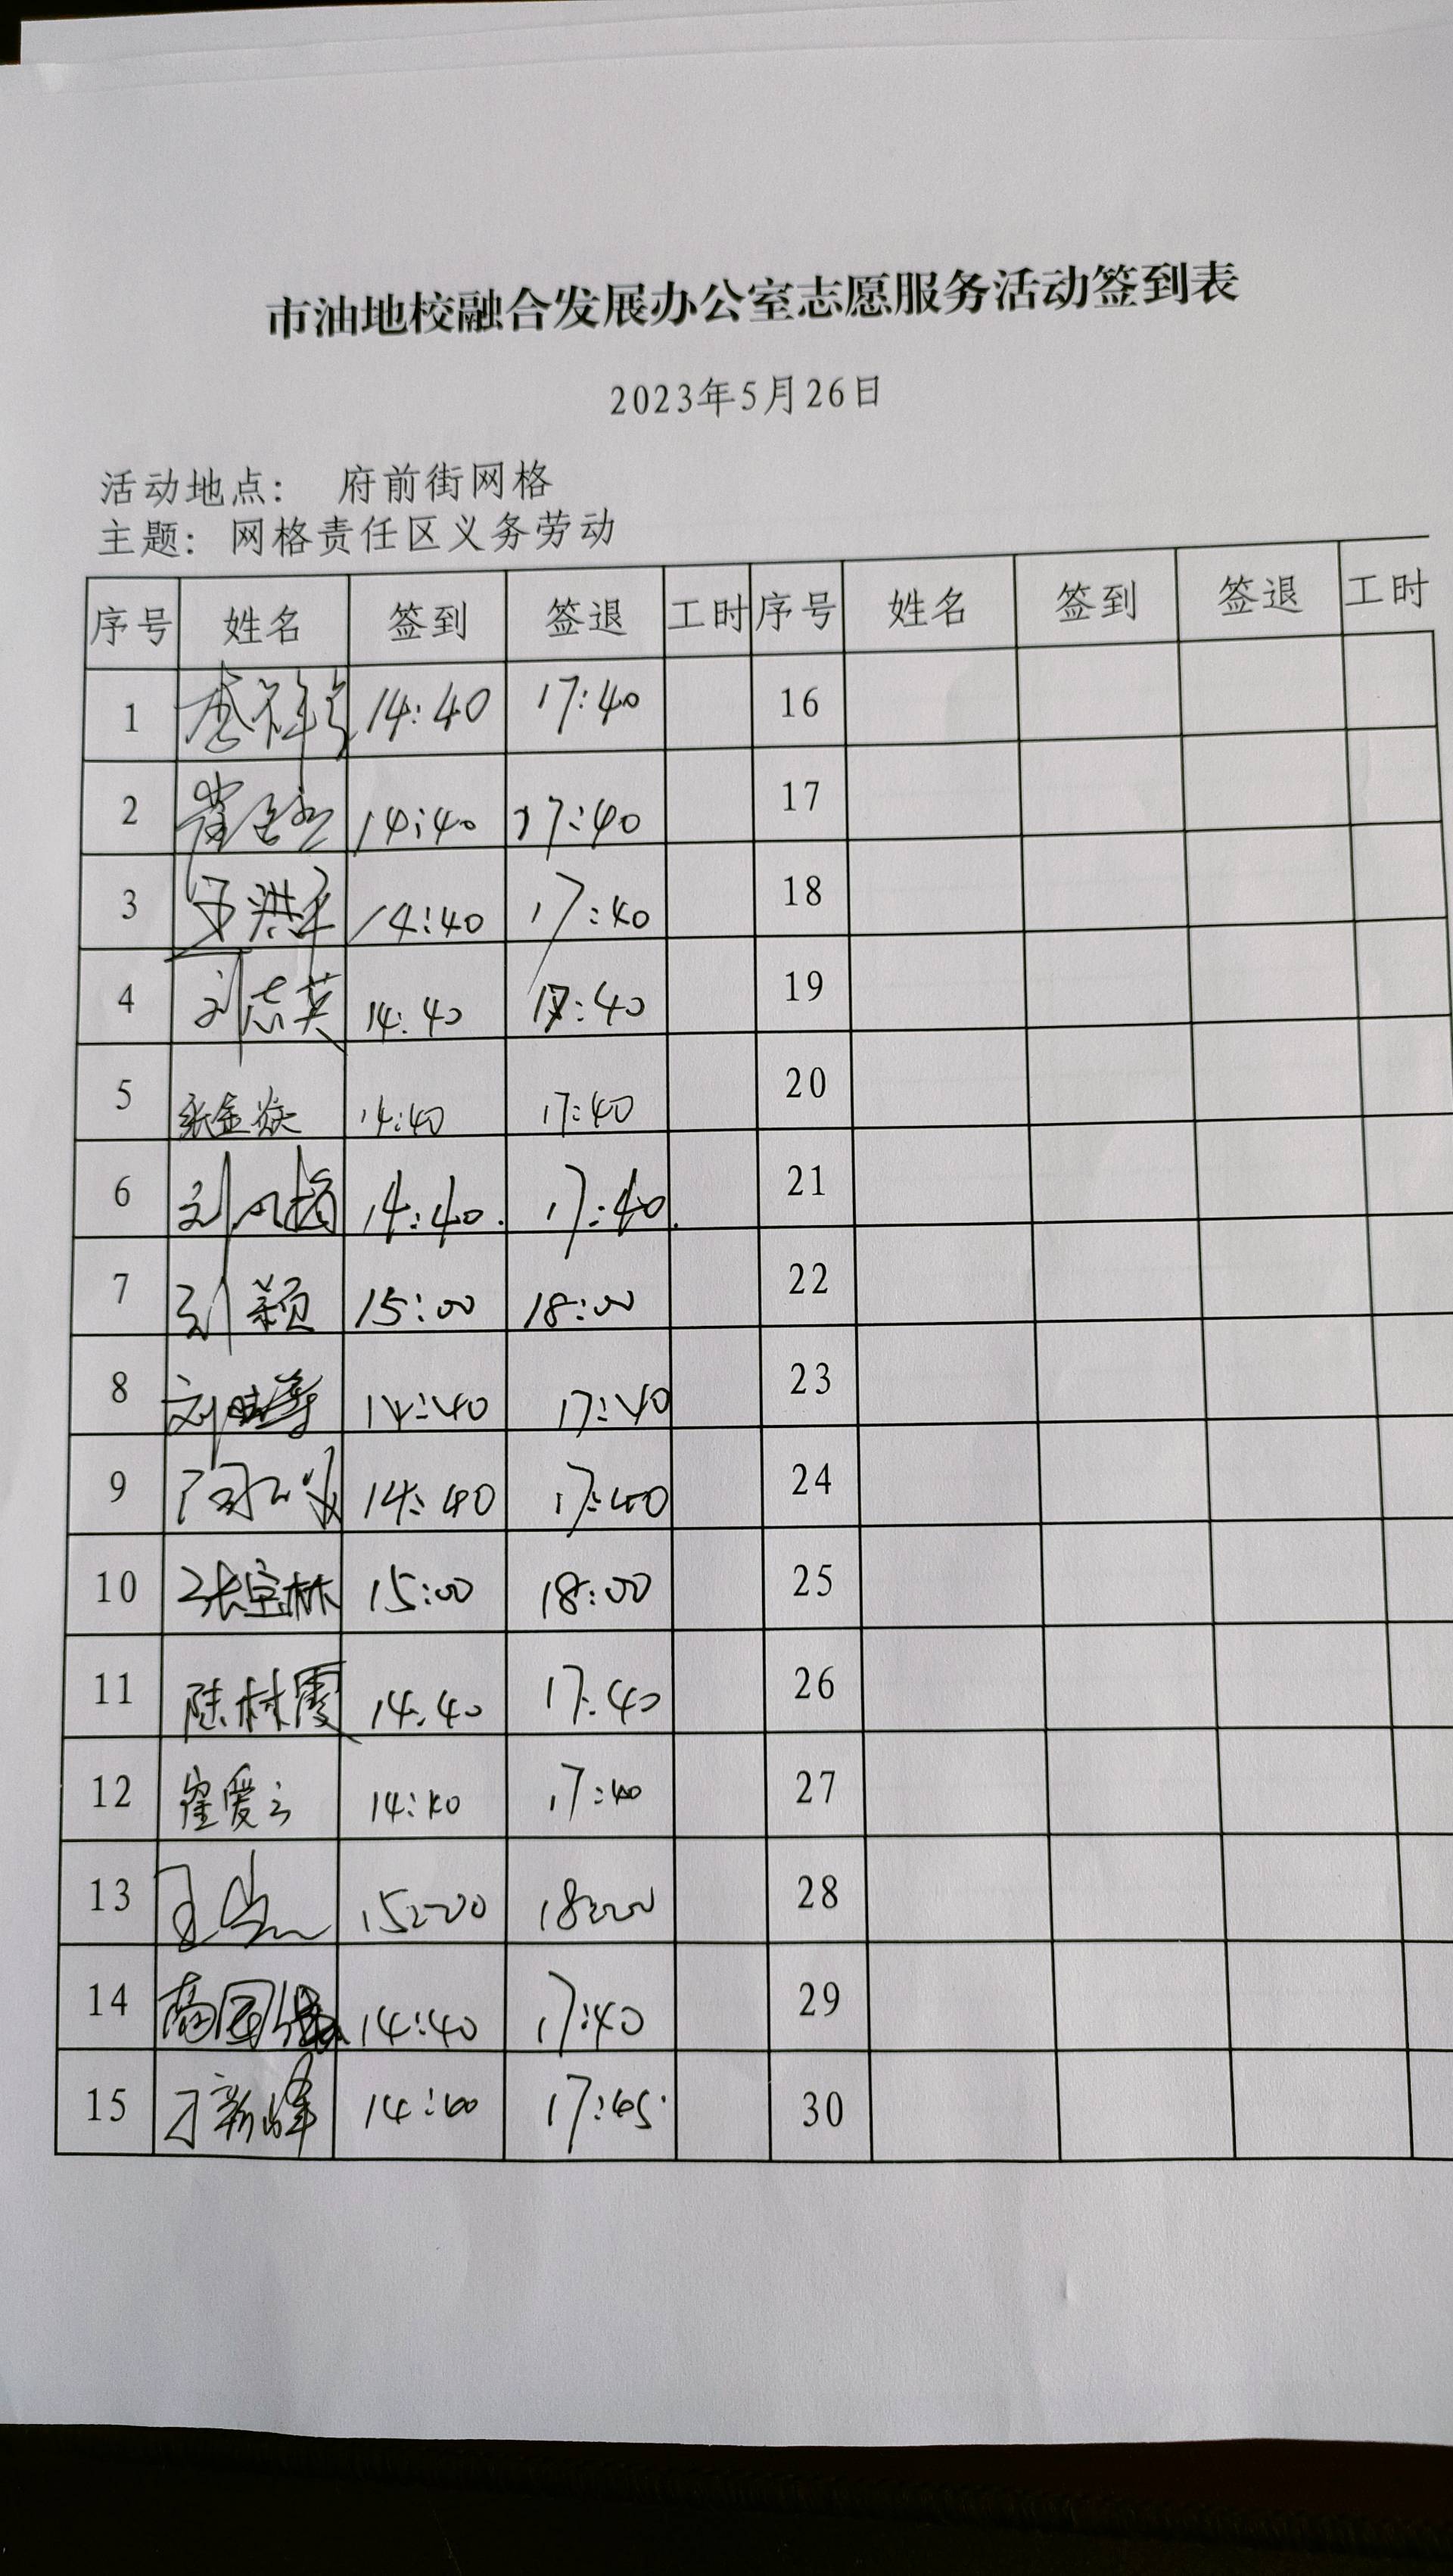 市油地校融合发展办公室志愿服务活动签到表
2023年5月26日
活动地点： 府前街网格
主题：网格责任区义务劳动
序号 姓名 签到 签退 工时 序号 姓名 签到 签退 工时
1 14:40 17:40 16
2 14:40 17:40 17
3 14:40 17:40 18
4 刘志英 14:40 17:40 19
5 14:40 17:40 20
6 14:40 17:40 21
7 刘颖 15:00 18:00 22
8 14:40 17:40 23
9 14:40 17:40 24
10 张宝林 15:00 18:00 25
11 陈林霞 14:40 17:40 26
12 崔爱云 14:40 17:40 27
13 15:00 18:00 28
14 14:40 17:40 29
15 14:40 17:45 30